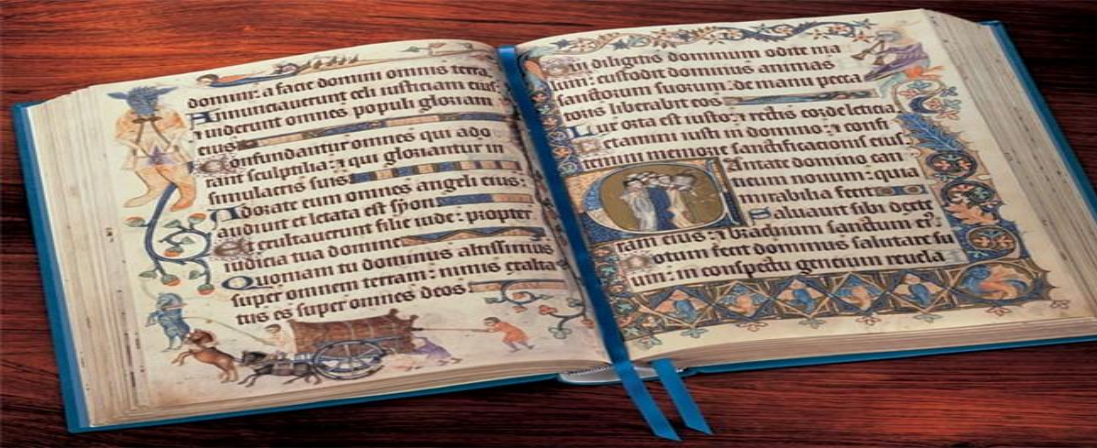 domini: a facie domini omnis terra.
Annunciauerunt celi iusticiam eius:
& uiderunt omnes populi gloriam
eius
Confundantur omnes qui ado
rant sculptilia: & qui gloriantur in
simulacris suis
Adorate eum omnes angeli eius:
audiuit et letata est syon
Et exultauerunt filie iude: propter
iudicia tua domine
Quoniam tu dominus altissimus
super omnem terram: nimis exalta
tus es super omnes deos
Qui diligitis dominum odite ma
lum: custodit dominus animas
sanctorum suorum: de manu pecca
toris liberabit eos
Lux orta est iusto: & rectis corde leticia
Letamini iusti in domino: & confi
temini memorie sanctificacionis eius.
Cantate domino can
ticum nouum: quia
mirabilia fecit
Saluauit sibi dexte
ram eius: & brachium sanctum eius
Notum fecit dominus salutare su
um: in conspectu gencium reuela